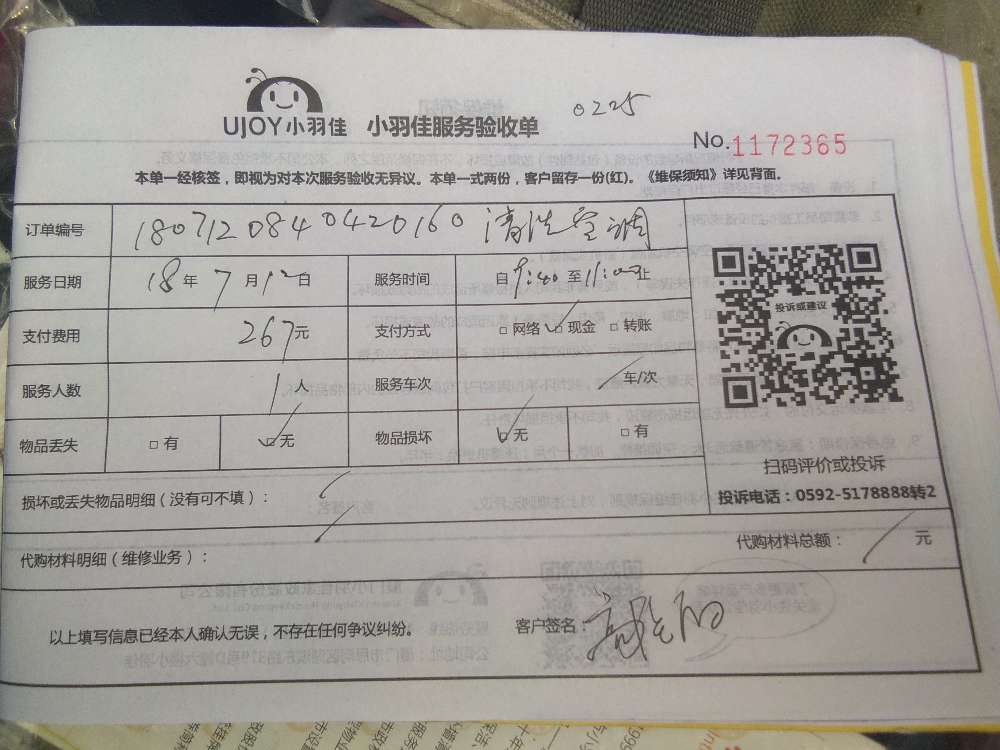 0225
UJOY小羽佳 小羽佳服务验收单
No.1172365
本单一经核签，即视为对本次服务验收无异议。本单一式两份，客户留存一份(红)。《维保须知》详见背面。
订单编号 1807120840420160 清洗空调
服务日期 18年7月12日 服务时间 自9:40至11:00止
投诉或建议
支付费用 267元 支付方式 □网络 ☑现金 □转账
服务人数 1人 服务车次 / 车/次
物品丢失 □有 ☑无 物品损坏 ☑无 □有
扫码评价或投诉
投诉电话：0592-5178888转2
损坏或丢失物品明细（没有可不填）： /
代购材料明细（维修业务）： 代购材料总额： / 元
以上填写信息已经本人确认无误，不存在任何争议纠纷。 客户签名：